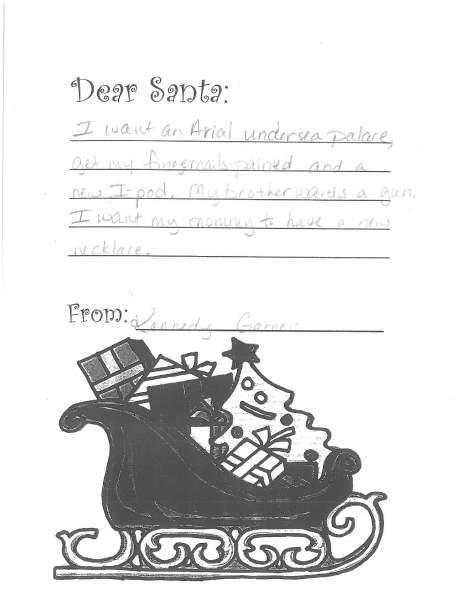 Dear Santa:
I want an Arial undersea palace,
get my fingernails pained and a
new I-pod. My brother wants a gun.
I want my mommy to have a new
necklace.
From: Kennedy Garner